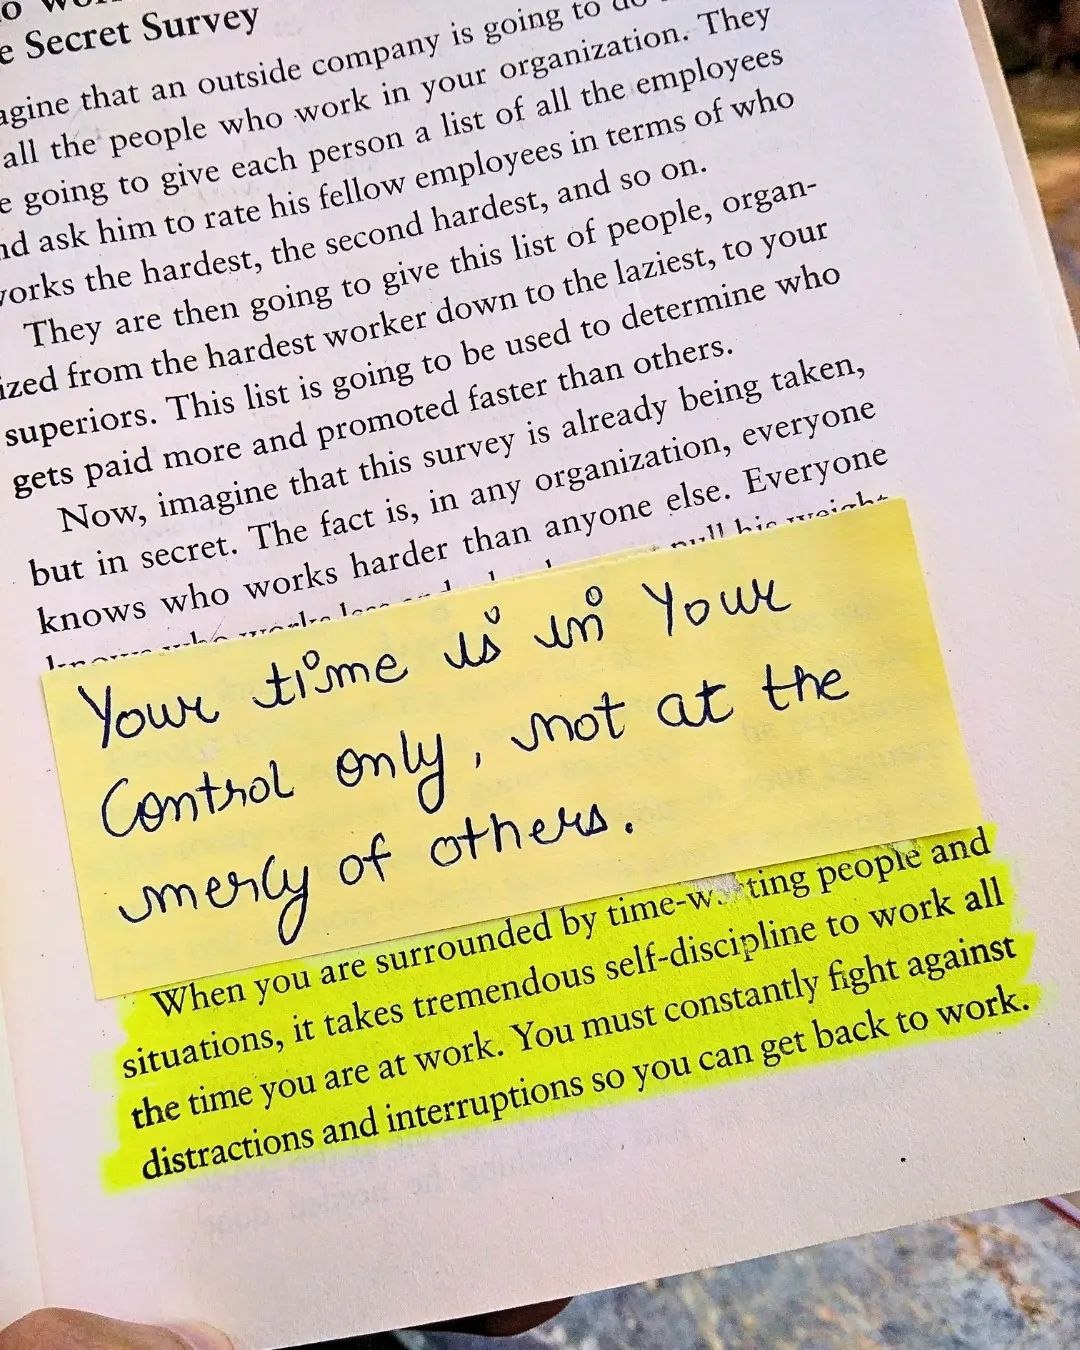 e Secret Survey
agine that an outside company is going to do
all the people who work in your organization. They
e going to give each person a list of all the employees
nd ask him to rate his fellow employees in terms of who
works the hardest, the second hardest, and so on.
They are then going to give this list of people, organ-
ized from the hardest worker down to the laziest, to your
superiors. This list is going to be used to determine who
gets paid more and promoted faster than others.
Now, imagine that this survey is already being taken,
but in secret. The fact is, in any organization, everyone
knows who works harder than anyone else. Everyone
pull his weight
Your time is in Your
Control only, not at the
mercy of others.
When you are surrounded by time-w ting people and
situations, it takes tremendous self-discipline to work all
the time you are at work. You must constantly fight against
distractions and interruptions so you can get back to work.